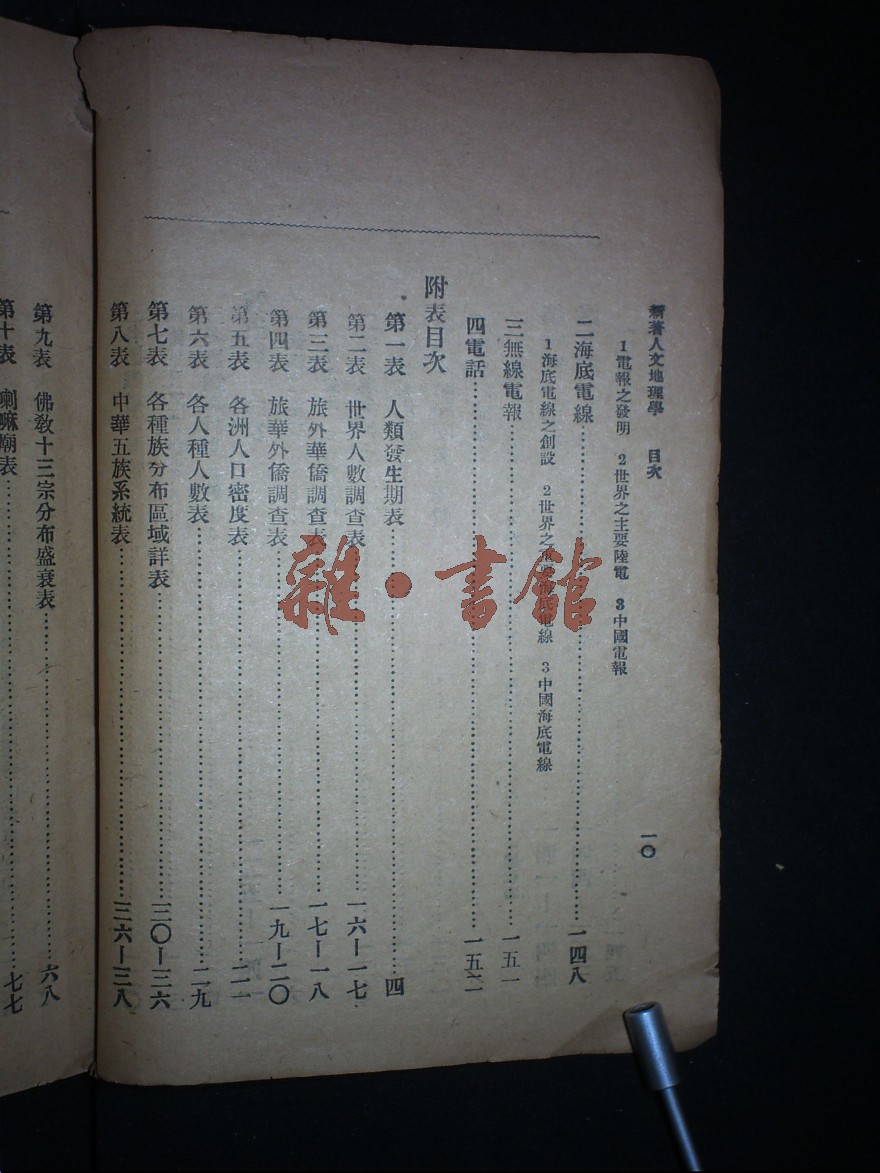 新著人文地理學　目次　一〇
1電報之發明　2世界之主要陸電　3中國電報
二海底電線……一四八
1海底電線之創設　2世界之　海底電線　3中國海底電線
三無線電報……一五一
四電話……一五二
附表目次
第一表　人類發生期表……四
第二表　世界人數調查表……一六—一七
第三表　旅外華僑調查表……一七—一八
第四表　旅華外僑調查表……一九—二〇
第五表　各洲人口密度表……二一
第六表　各人種人數表……二九
第七表　各種族分布區域詳表……三〇—三六
第八表　中華五族系統表……三六—三八
第九表　佛教十三宗分布盛衰表……六八
第十表　喇嘛廟表……七七
雜·書館